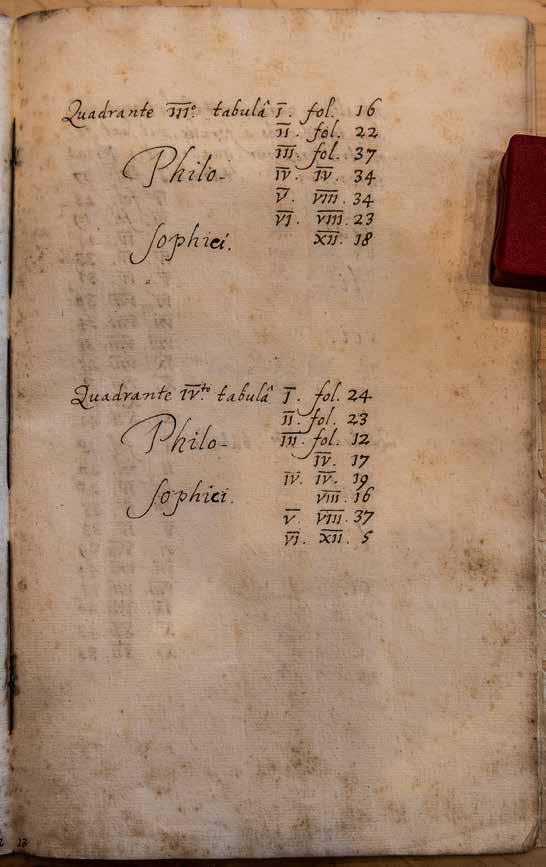 Quadrante III.° tabulâ I. fol. 16
II. fol. 22
III. fol. 37
Philo- IV. IV. 34
V. VIII. 34
VI. VIII. 23
sophici. XII. 18
Quadrante IV.to tabulâ I. fol. 24
II. fol. 23
Philo- III. fol. 12
IV. 17
IV. IV. 19
sophici. VIII. 16
V. VIII. 37
VI. XII. 5
13